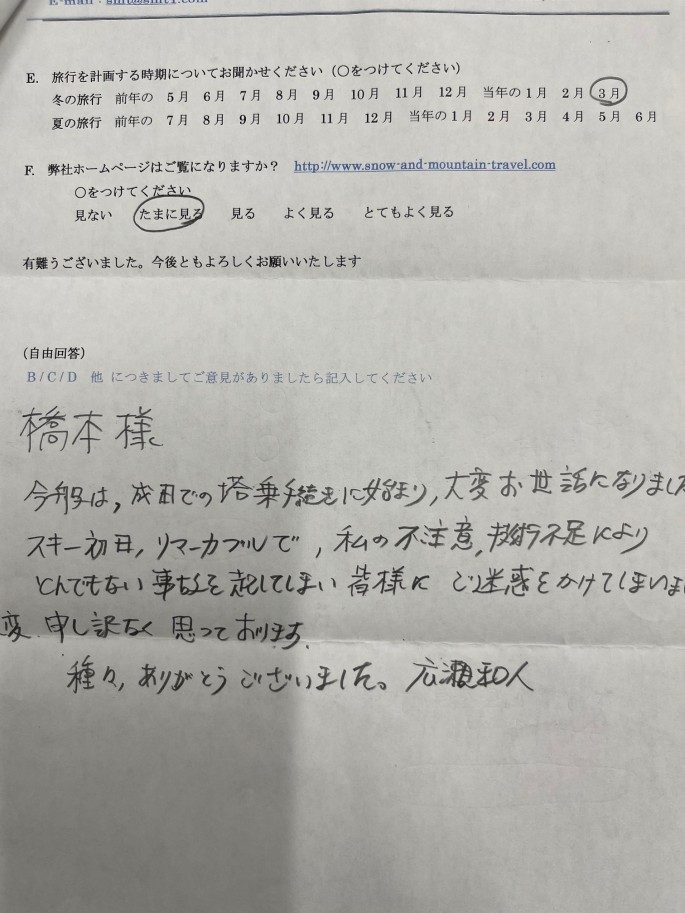 E-mail : smt@smt1.com
E. 旅行を計画する時期についてお聞かせください（○をつけてください）
冬の旅行 前年の 5月 6月 7月 8月 9月 10月 11月 12月 当年の1月 2月 3月
夏の旅行 前年の 7月 8月 9月 10月 11月 12月 当年の1月 2月 3月 4月 5月 6月
F. 弊社ホームページはご覧になりますか？ http://www.snow-and-mountain-travel.com
○をつけてください
見ない たまに見る 見る よく見る とてもよく見る
有難うございました。今後ともよろしくお願いいたします
（自由回答）
B/C/D 他 につきましてご意見がありましたら記入してください
橋本様
今般は，成田での塔乗手続きに始まり，大変お世話になりました
スキー初日，リマーカブルで，私の不注意，技術不足により
とんでもない事故を起してしまい皆様にご迷惑をかけてしまいま
変 申し訳なく思っております．
種々，ありがとうございました。広瀬和人